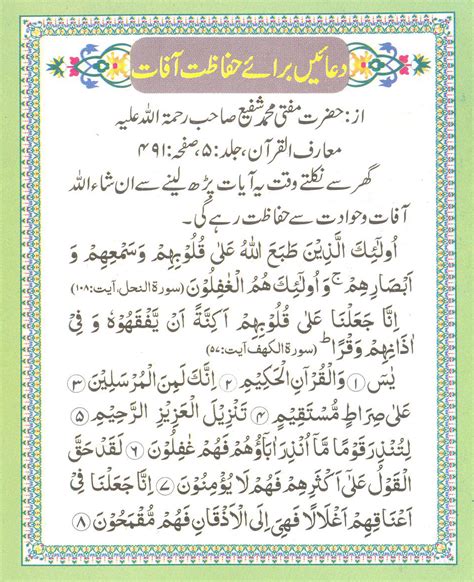 دعائیں برائے حفاظت آفات
از: حضرت مفتی محمد شفیع صاحب رحمۃ اللہ علیہ
معارف القرآن، جلد: ۵، صفحہ: ۴۹۱
گھر سے نکلتے وقت یہ آیات پڑھ لینے سے ان شاء اللہ
آفات و حوادث سے حفاظت رہے گی۔
اُولٰٓئِكَ الَّذِيْنَ طَبَعَ اللّٰهُ عَلٰى قُلُوْبِهِمْ وَسَمْعِهِمْ وَ
اَبْصَارِهِمْ ۚ وَاُولٰٓئِكَ هُمُ الْغٰفِلُوْنَ (سورۃ النحل، آیت: ۱۰۸)
اِنَّا جَعَلْنَا عَلٰى قُلُوْبِهِمْ اَكِنَّةً اَنْ يَّفْقَهُوْهُ وَ فِيْ
اٰذَانِهِمْ وَقْرًا ؕ (سورۃ الکہف آیت: ۵۷)
يٰسٓ ۱ وَالْقُرْاٰنِ الْحَكِيْمِ ۲ اِنَّكَ لَمِنَ الْمُرْسَلِيْنَ ۳
عَلٰى صِرَاطٍ مُّسْتَقِيْمٍ ۴ تَنْزِيْلَ الْعَزِيْزِ الرَّحِيْمِ ۵
لِتُنْذِرَ قَوْمًا مَّآ اُنْذِرَ اٰبَآؤُهُمْ فَهُمْ غٰفِلُوْنَ ۶ لَقَدْ حَقَّ
الْقَوْلُ عَلٰٓى اَكْثَرِهِمْ فَهُمْ لَا يُؤْمِنُوْنَ ۷ اِنَّا جَعَلْنَا فِيْٓ
اَعْنَاقِهِمْ اَغْلٰلًا فَهِيَ اِلَى الْاَذْقَانِ فَهُمْ مُّقْمَحُوْنَ ۸